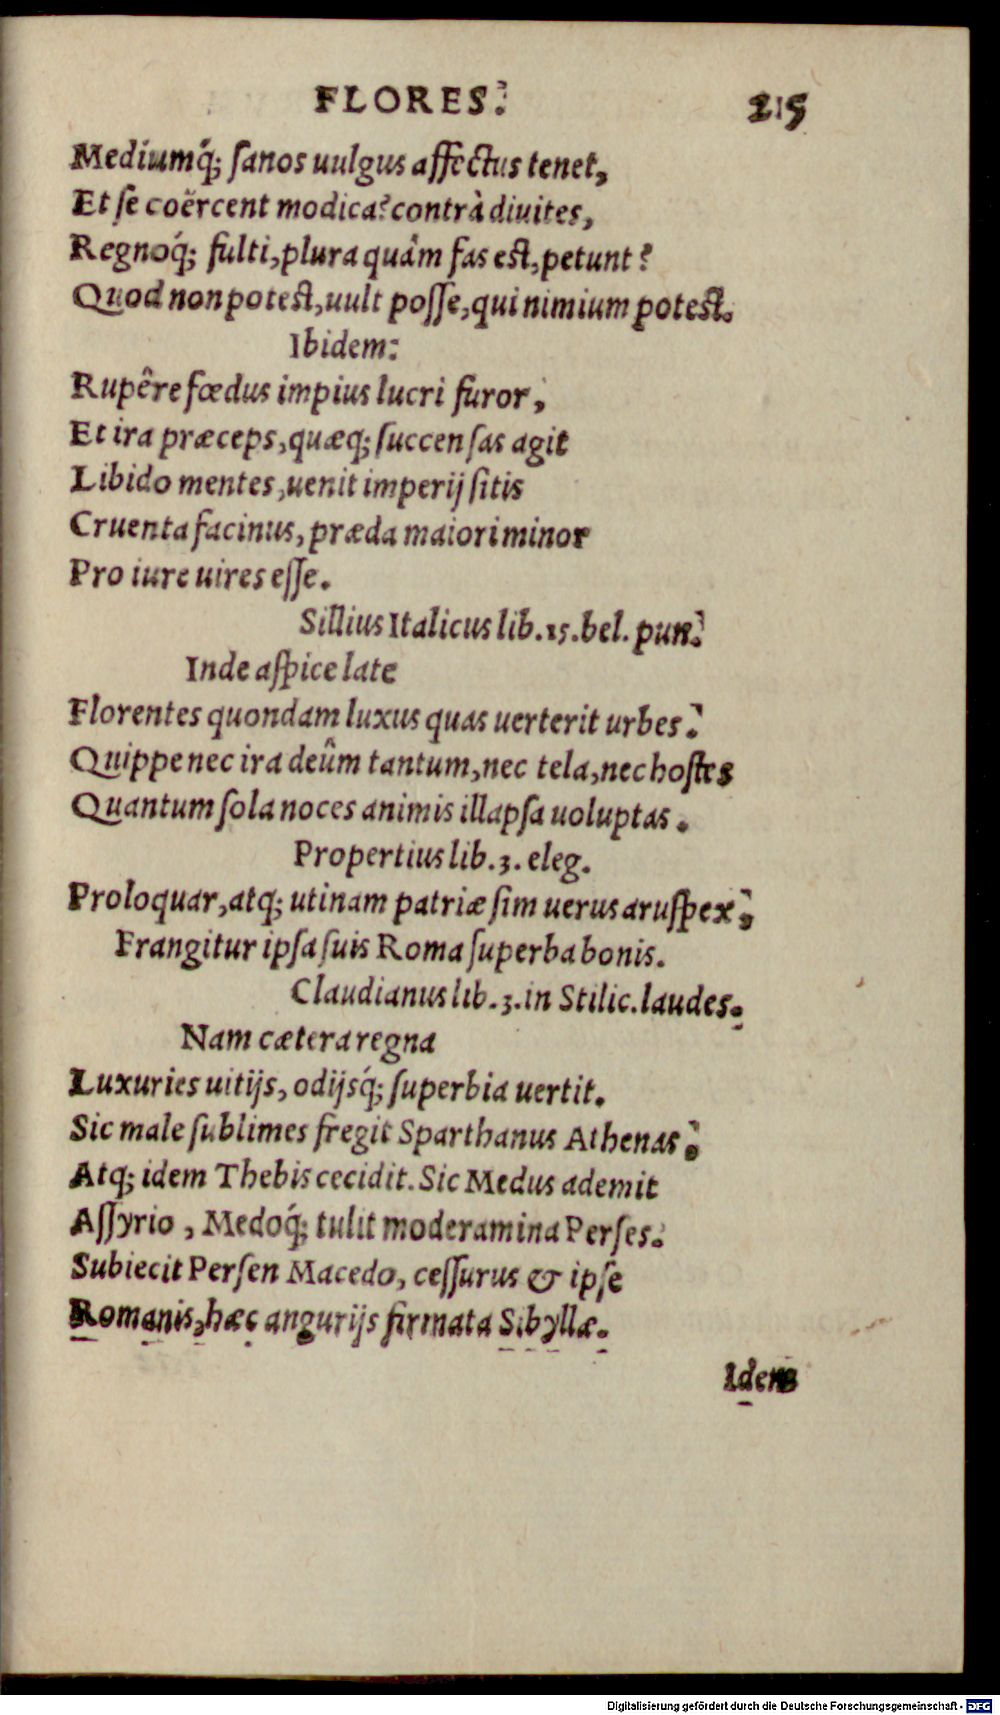 FLORES.
215
Mediumq́; ſanos uulgus affectus tenet,
Et ſe coërcent modica? contrà diuites,
Regnoq́; fulti, plura quàm fas est, petunt?
Quod non potest, uult poſſe, qui nimium potest.
Ibidem:
Rupêre fœdus impius lucri furor,
Et ira præceps, quæq; ſuccenſas agit
Libido mentes, uenit imperij ſitis
Cruenta facinus, præda maiori minor
Pro iure uires eſſe.
Sillius Italicus lib. 15. bel. pun.
Inde aſpice late
Florentes quondam luxus quas uerterit urbes.
Quippe nec ira deûm tantum, nec tela, nec hostes
Quantum ſola noces animis illapſa uoluptas.
Propertius lib. 3. eleg.
Proloquar, atq; utinam patriæ ſim uerus aruſpex;
Frangitur ipſa ſuis Roma ſuperba bonis.
Claudianus lib. 3. in Stilic. laudes.
Nam cætera regna
Luxuries uitijs, odijsq́; ſuperbia uertit.
Sic male ſublimes fregit Sparthanus Athenas.
Atq; idem Thebis cecidit. Sic Medus ademit
Aſſyrio, Medoq́; tulit moderamina Perſes.
Subiecit Perſen Macedo, ceſſurus & ipſe
Romanis, hæc angurijs firmata Sibyllæ.
Idem
Digitalisierung gefördert durch die Deutsche Forschungsgemeinschaft - DFG